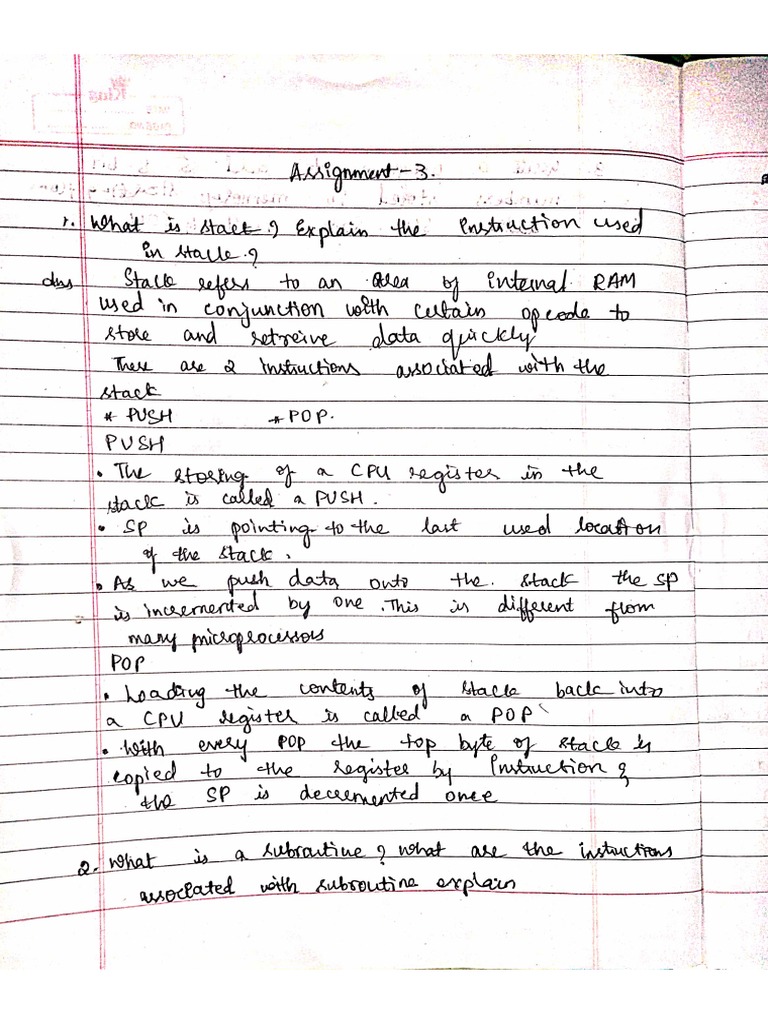 Assignment-3.
1. What is stack? Explain the Instruction used
in stack?
Ans Stack refers to an area of internal RAM
used in conjunction with certain opcode to
store and retreive data quickly
There are 2 instructions associated with the
stack
* PUSH * POP.
PUSH
• The storing of a CPU register in the
stack is called a PUSH.
• SP is pointing to the last used location
of the stack.
• As we push data onto the stack the SP
is incremented by one. This is different from
many microprocessors
POP
• Loading the contents of stack back into
a CPU register is called a POP
• With every POP the top byte of stack is
copied to the register by Instruction &
the SP is decremented once
2. What is a subroutine? what are the instructions
associated with subroutine explain